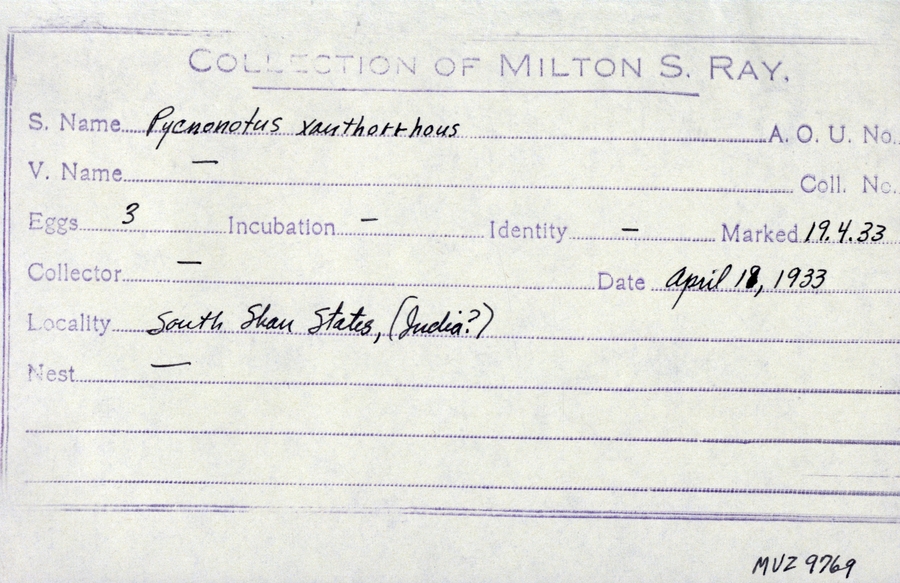 COLLECTION OF MILTON S. RAY.
S. Name Pycnonotus xanthorrhous A. O. U. No.
V. Name — Coll. No.
Eggs 3 Incubation — Identity — Marked 19.4.33
Collector — Date April 18, 1933
Locality South Shan States, (India?)
Nest —
MVZ 9769